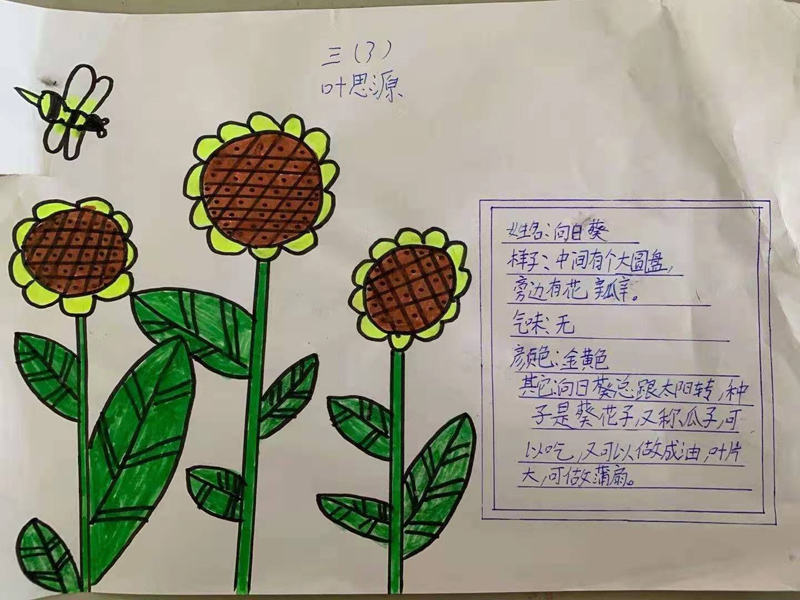 三（3）
叶思源
姓名：向日葵
样子：中间有个大圆盘，
旁边有花瓣。
气味：无
颜色：金黄色
其它：向日葵总跟太阳转，种
子是葵花子，又称瓜子，可
以吃，又可以做成油，叶片
大，可做蒲扇。